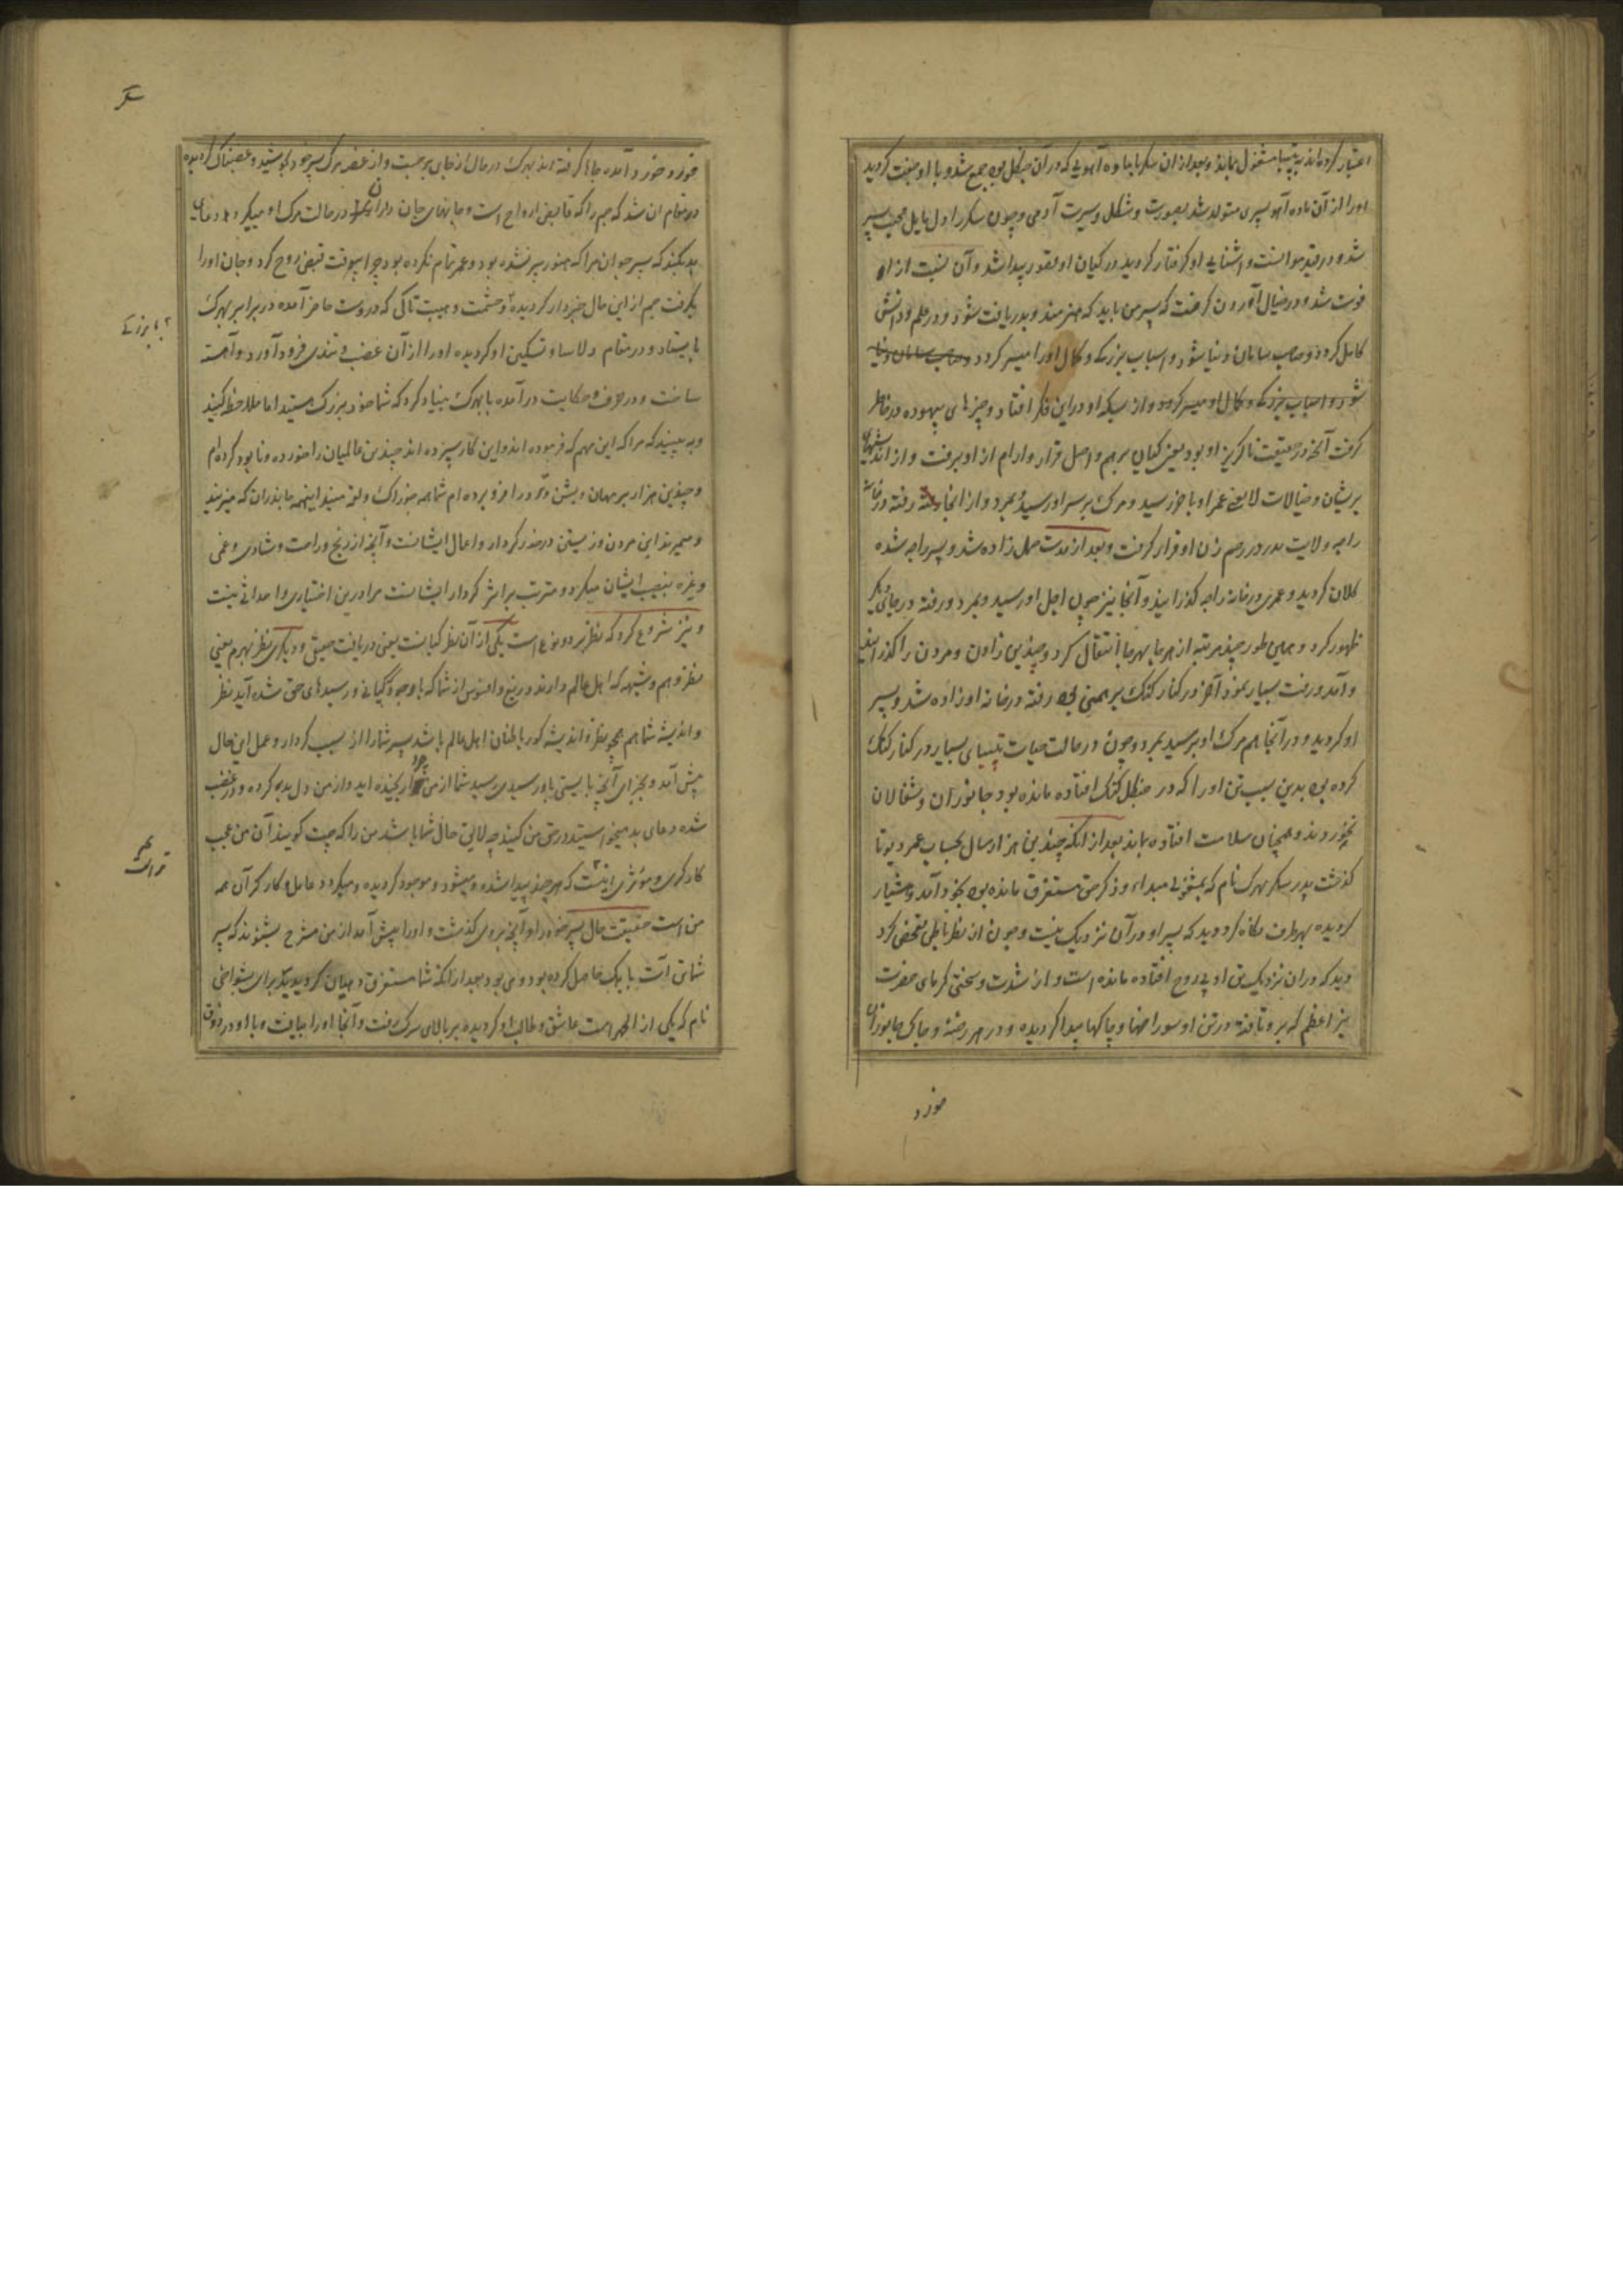 اعتبار کرده اند به تپسیا مشغول بماند و بعد از ان سکر با ماده آهویی که در آن جنگل بود جمع شد و با او جفت گردید
او را از آن ماده آهو پسری متولد شد بصورت و شکل و سیرت آدمی و چون سکر را دل مایل محبت پسر
شد و در قید موانست و آشنایی او گرفتار گردید در گیان او قصور پیدا شد و آن نسبت از او
فوت شد و در خیال آوردن گرفت که پسر من باید که هنرمند و بدریافت شود و در علم و دانش
کامل گردد و صاحب سامان دنیا شود و اسباب بزرگی و کمال او را میسر گردد و صاحب سامان دنیا
شود و اسباب بزرگی و کمال او میسر گردد و از بسکه او در این فکر افتاد و چیزهای بیهوده در خاطر
گرفت آنچه در حقیقت ناگزیر او بود یعنی گیان برهم و اصل قرار و ارام از او برفت و از اندیشهای
پریشان و خیالات لایعنی عمر او باخر رسید و مرگ بر سر او رسید و بمرد و از انجا رفته در خانه
راجه ولایت مدر در رحم زن او قرار گرفت و بعد از مدت حمل زاده شد و پسر راجه شده
کلان گردید و عمری در خانه راجه گذرانید و آنجا نیز چون اجل او رسید و بمرد و رفته در جای دیگر
ظهور کرد و همین طور چند مرتبه از هر جا بهر جا انتقال کرد و چندین زادن و مردن را گذرانید
و آمد و رفت بسیار نمود آخر در کنار گنگ برهمنی بود رفته در خانه او زاده شد و پسر
او گردید و در آنجا هم مرگ او برسید بمرد و چون در حالت حیات تپسیای بسیار در کنار گنگ
کرده بود بدین سبب تن او را که در جنگل گنگ افتاده مانده بود جانوران و شغالان
نخوردند و همچنان سلامت افتاده بماند بعد از انکه چندین هزار سال بحساب عمر دیوتا
گذشت پدر سکر بهرگ نام که بمشغولی مبداء و ذکر حق مستغرق مانده بود بخود آمد و هشیار
گردیده بهر طرف نگاه کرد و دید که پسر او در آن نزدیک نیست و چون از نظر باطن تفحص کرد
دید که در ان نزدیک تن او بی روح افتاده مانده است و از شدت و سختی گرمای حضرت
نیر اعظم که بر او تافته در تن او سوراخها و چاکها پیدا گردیده و در هر رخنه و چاک جانوران
خورد
سکر
خورد و خورد آمده جا گرفته اند بهرگ در حال از جای برجست و از غصه مرگ پسر خود بجوشید و غضبناک گردیده
در مقام ان شد که جم را که قابض ارواح است و جانهای جان داران را در حالت مرگ او میگیرد دعای
بد بکند که پسر جوان مرا که هنوز پیر نشده بود و عمر تمام نکرده بود چرا بیوقت قبض روح کرد و جان او را
بگرفت جم از این حال خبردار گردیده و حشمت و هیبت تاکی که در اوست حاضر آمده در برابر بهرگ
بایستاد و در مقام دلاسا و تسکین او گردیده او را از آن غضب و تندی فرود آورد و آهسته
ساخت و در حرف و حکایت درآمده با بهرگ بنیاد کرد که شما خود بزرگ هستید اما ملاحظه کنید
و به بینید که مرا که این مهم که فرموده اند و این کار سپرده اند چندین عالمیان را خورده و نابود کرده ام
و چندین هزار برمهان و بشن و رودر را فرو برده ام شما همه خوراک و لقمه منید اینهمه جانداران که میزیند
و میمیرند این مردن و زیستن در خور کردار و اعمال ایشانست و آنچه از رنج و راحت و شادی و غمی
و غیره نصیب ایشان میگردد مترتب بر اثر کردار ایشانست مرا درین اختیاری و احداثی نیست
و نیز شروع کرد که نظر بر دو نوع است یکی از آن نظر گیانست یعنی دریافت حقیقی و دیگری نظر بهرم یعنی
نظر وهم و شبهه که اهل عالم دارند دریغ و افسوس از شما که با وجود گیانی و رسیدهای حق شده آید نظر
و اندیشه شما هم همچو نظر و اندیشه کور باطنان اهل عالم باشد پسر شما را از سبب کردار و عمل این حال
پیش آمد و بجزای آنچه بایستی باو رسید رسید شما از من چرا رنجیده اید و از من دل بد کرده و در غضب
شده دعای بد میخواستید در حق من کنید چه لایق حال شما باشد من را که چت گویند آن من عجب
کارگری و مؤثری است که هر چه پیدا شده و میشود و موجود گردیده و میگردد عامل و کارگر آن همه
من است حقیقت حال پسر خود را و آنچه بر وی گذشت و او را پیش آمد از من مشرح بشنوید که پسر
شما تن آتما بایک حاصل کرده بود و می بود بعد از انکه شما مستغرق دهیان گردیدید برای بشواچی
نام که یکی از اپچهراست عاشق و طالب او گردیده بر بالای سرگ رفت و آنجا او را بیافت و با او در ذوق